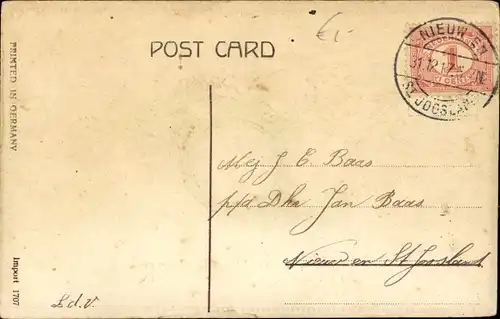 €1-
POST CARD
NIEUW EN
31.12.12
ST JOOSLAND
1
PRINTED IN GERMANY
Import 1707
Mej J E Baas
p/a Dhr Jan Baas
Nieuw en St Joosland
L.d.V.